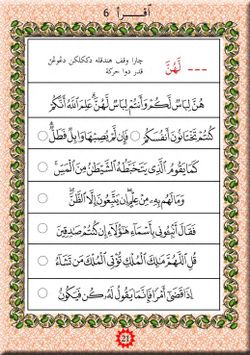 أقرأ 6
چارا وقف هندقله دککلکن دڠوڠن
قدر دوا حركة
--- لَهُنَّ
هُنَّ لِبَاسٌ لَّكُمْ وَأَنتُمْ لِبَاسٌ لَّهُنَّ عَلِمَ اللَّهُ أَنَّكُمْ
كُنتُمْ تَخْتَانُونَ أَنفُسَكُمْ فَإِن لَّمْ يُصِبْهَا وَابِلٌ فَطَلٌّ
كَمَا يَقُومُ الَّذِي يَتَخَبَّطُهُ الشَّيْطَنُ مِنَ الْمَسِّ
وَمَا لَهُم بِهِ مِنْ عِلْمٍ إِن يَتَّبِعُونَ إِلَّا الظَّنَّ
فَقَالَ أَنبِئُونِي بِأَسْمَاءِ هَٰؤُلَاءِ إِن كُنتُمْ صَدِقِينَ
قُلِ اللَّهُمَّ مَلِكَ الْمُلْكِ تُؤْتِي الْمُلْكَ مَن تَشَاءُ
إِذَا قَضَىٰ أَمْرًا فَإِنَّمَا يَقُولُ لَهُ كُن فَيَكُونُ
21